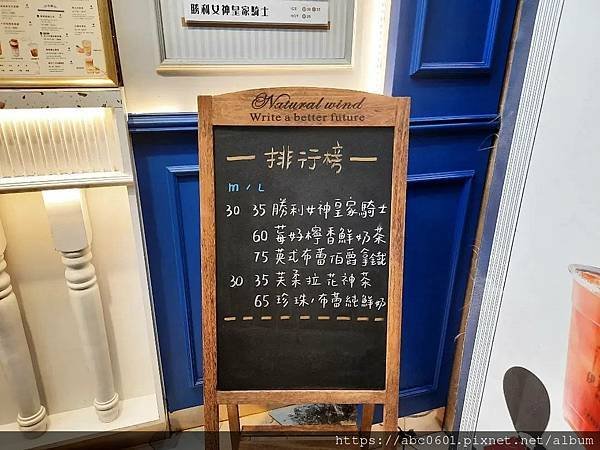 勝利女神皇家騎士
Natural wind
Write a better future
一排行榜一
M / L
30 35 勝利女神皇家騎士
60 莓好檸香鮮奶茶
75 英式布蕾伯爵拿鐵
30 35 芙柔拉花神茶
65 珍珠/布蕾純鮮奶
https://abc0601.pixnet.net/album